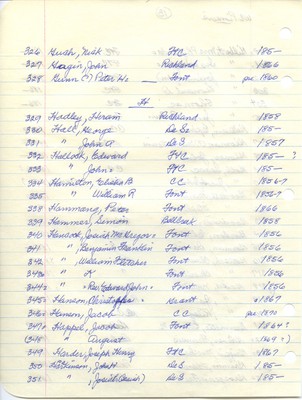 326 Gush, Nick FC 185-
327 Hagin, John Richland 1866
328 Gwinn (?) Peter H. Font pre 1860
H
329 Hadley, Hiram Richland 1858
330 Hall, George De So 185-
331 " John A De S 1857
332 Hallock, Edward FC 185- ?
333 " John FC 185-
334 Hamilton, Elisha B CC 1856-?
335 " William R Font 1856?
338 Hammang, Peter Font 1866
339 Hammer, Simon Bellbrk 1858
340 Hancock, Josiah McGregor Font 1856
341 " , Benjamin Franklin Font 1856
342 " , William Fletcher Font 1856
343 " K Font 1856
344 " Rev. Edward John Font 1856
345 Hanson, Christopher 1867
346 Hanson, Jacob CC 1870
347 Happel, Jacob Font 1864?
348 " August 1869?
349 Harder, Joseph Henry FC 1867
350 John H De S 185-
351 " , Josiah De S 185-